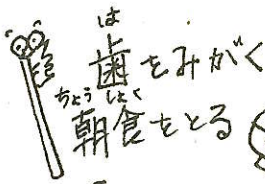 は
歯をみがく
ちょうしょく
朝食をとる